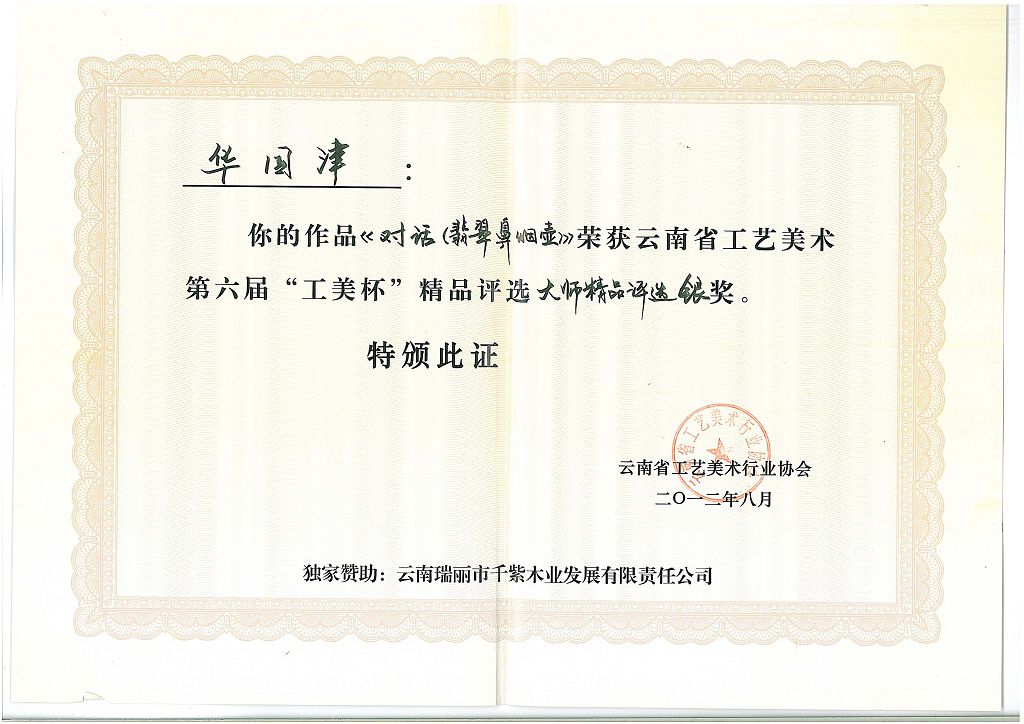 华国津：
你的作品《对话（翡翠鼻烟壶）》荣获云南省工艺美术
第六届“工美杯”精品评选大师精品评选银奖。
特颁此证
云南省工艺美术行业协会
云南省工艺美术行业协会
二〇一二年八月
独家赞助：云南瑞丽市千紫木业发展有限责任公司